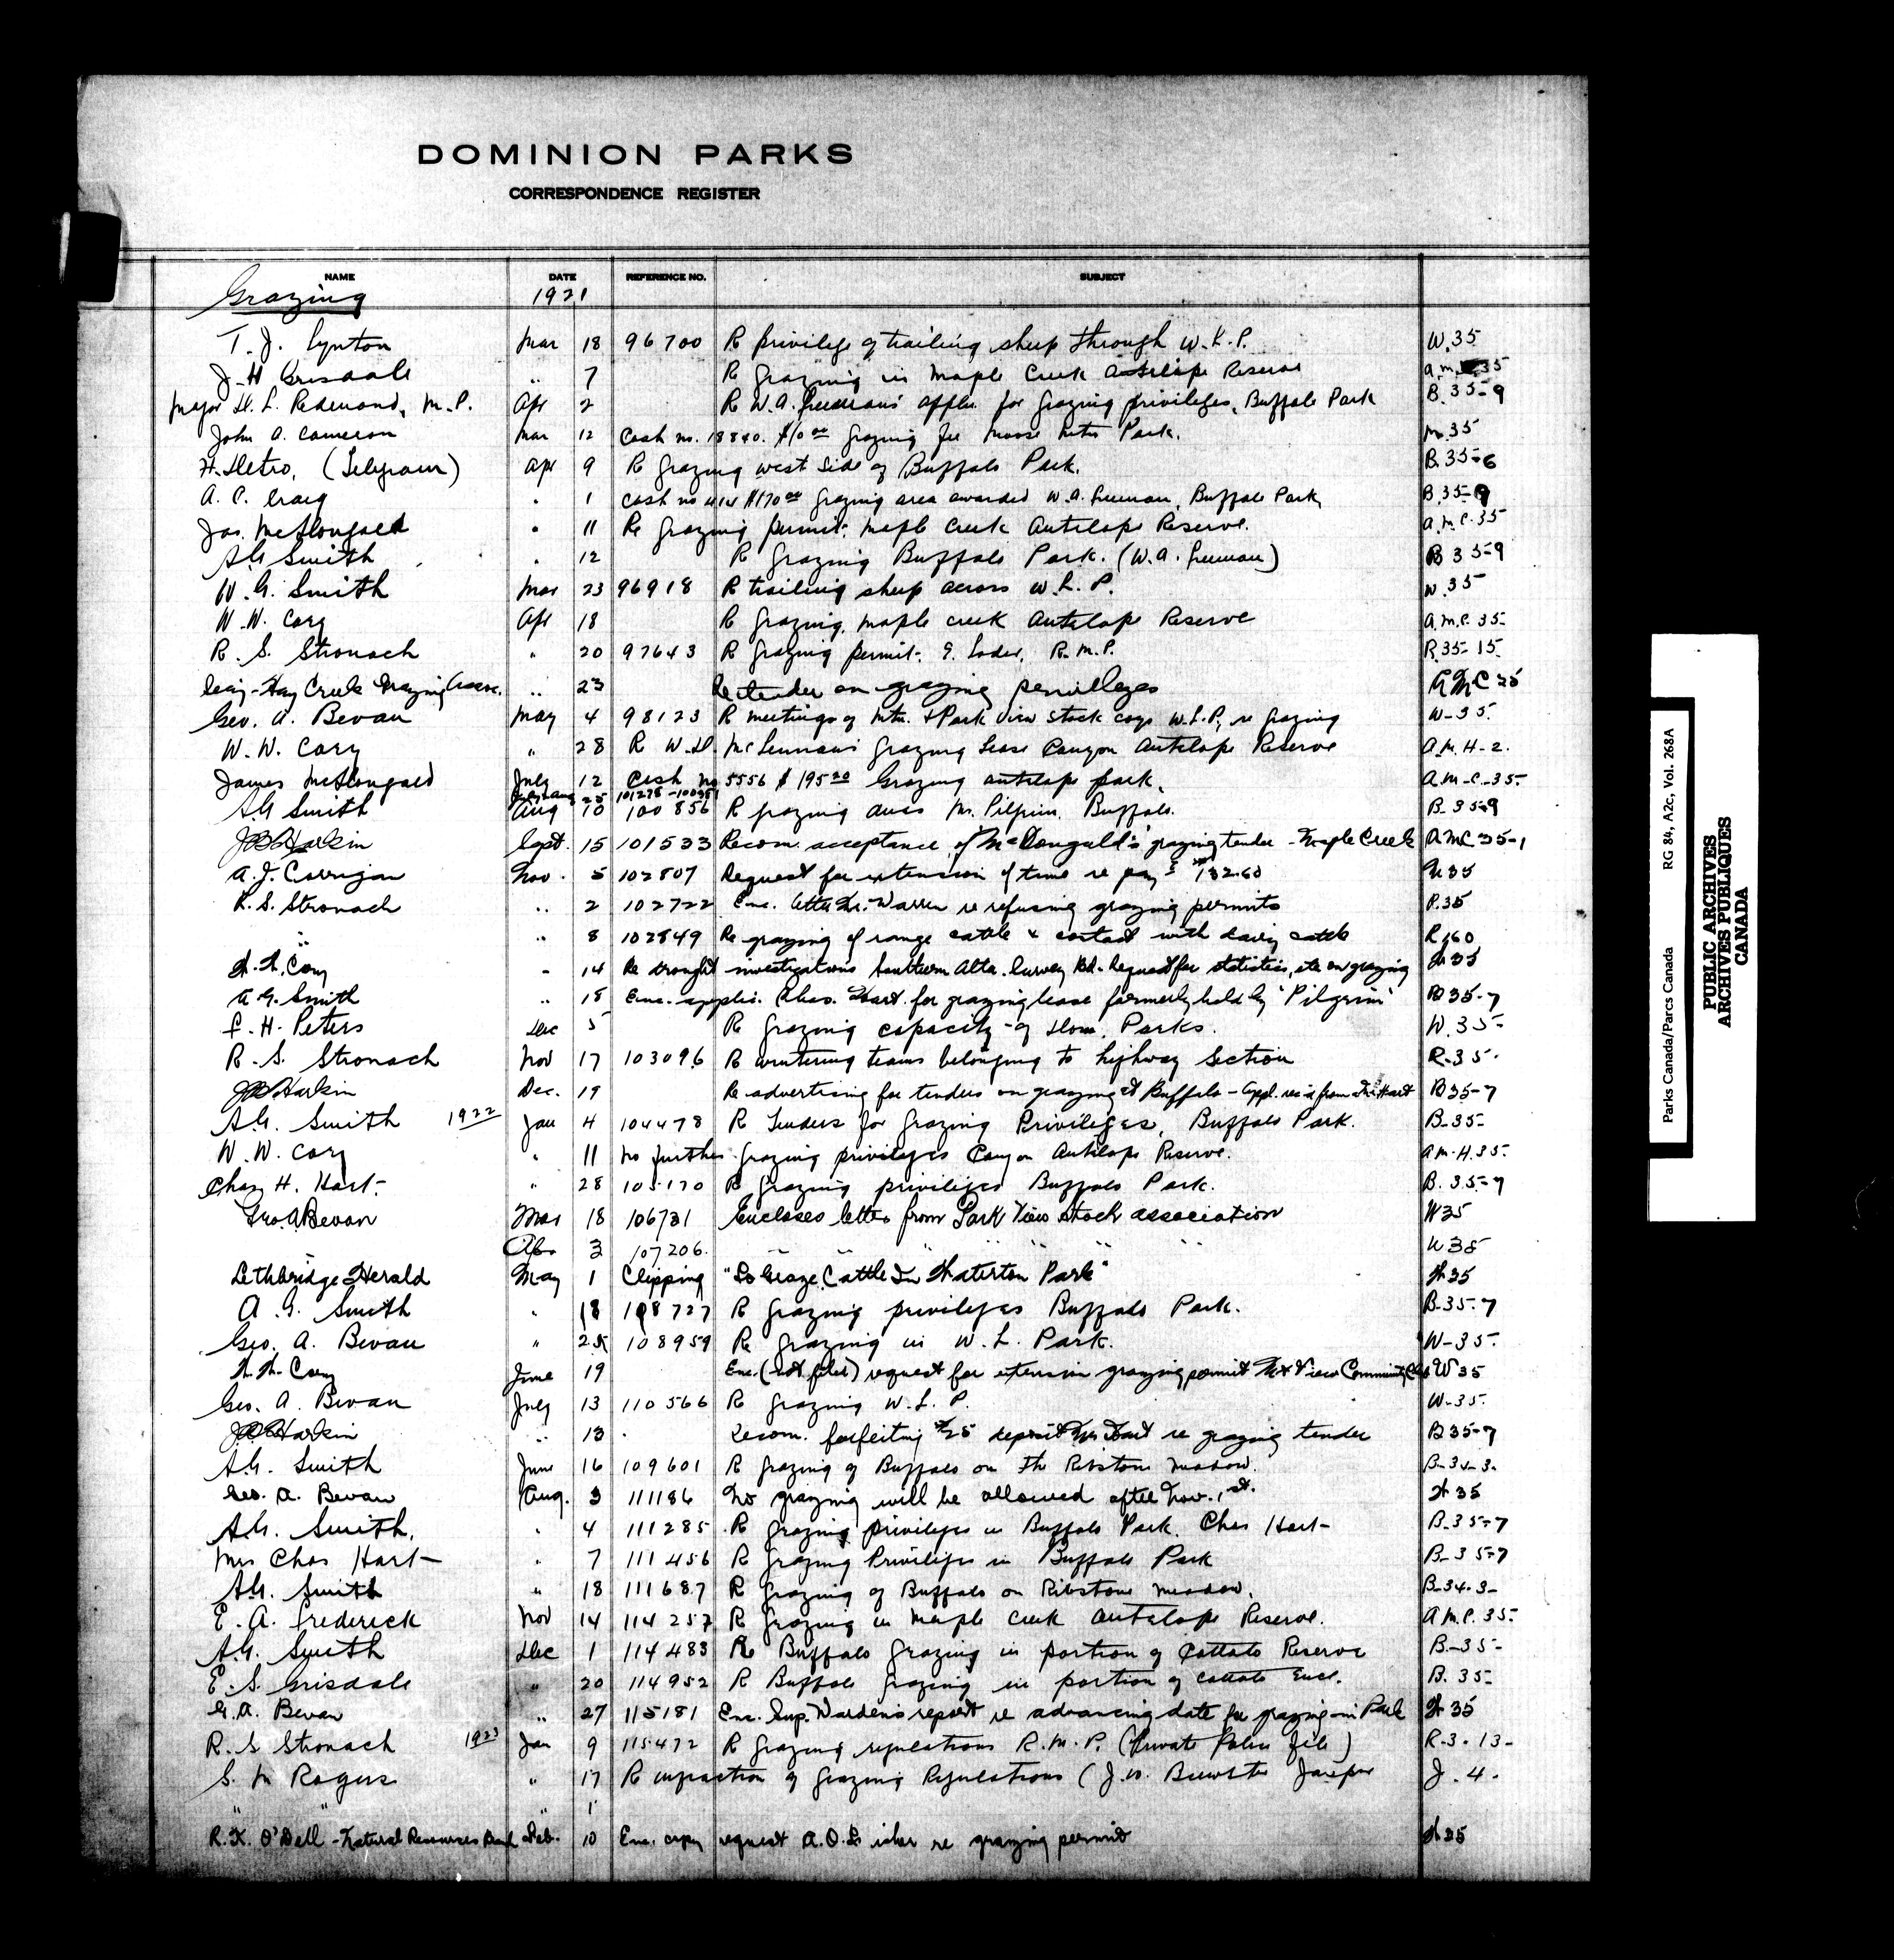 DOMINION PARKS
CORRESPONDENCE REGISTER
NAME DATE REFERENCE NO. SUBJECT
Grazing 1921
T. J. Lynton Mar 18 96700 R privilege of trailing sheep through W.L.P. W.35
J. H. Grisdale " 7 R grazing in Maple Creek Antelope Reserve a.m. 35
Major D. L. Redmond, M.P. Apr 2 R W.A. Freeman's appln for grazing privileges, Buffalo Park B.35-9
John A. Cameron Mar 12 Cash no. 18840. $10.00 grazing fee Moose Mtn Park. M.35
H. Detro, (Telegram) Apr 9 R grazing west side of Buffalo Park. B.35-6
A. C. Craig " 1 Cash no 414 $170.00 grazing area awarded W.A. Freeman, Buffalo Park B.35-9
Jas. McDougald " 11 Re grazing permit. Maple Creek Antelope Reserve. a.m.c.35
A.G. Smith " 12 R grazing Buffalo Park. (W.A. Freeman) B 35-9
W. G. Smith Mar 23 96918 R trailing sheep across W.L.P. W.35
W. W. Cory Apr 18 R grazing, Maple Creek Antelope Reserve A.M.C. 35-
R. S. Stronach " 20 97643 R grazing permit. Loder, R.M.P. R.35-15-
-Hay Creek Grazing Assoc. " 23 Re tender on grazing privileges AMC 35
Geo. A. Bevan May 4 98123 R meetings of Mtn. & Park View stock coys W.L.P, re grazing W-35-
W. W. Cory " 28 R W.D. McLennan's grazing lease Canyon Antelope Reserve A.M.H-2.
James McDougald July 12 Cash no 5556 $195.20 Grazing antelope park. A.M-C-35-
25 101278
AG Smith Aug 10 100856 R grazing area Mr. Pilgrim. Buffalo. B.35-9
JB Harkin Sept. 15 101533 Recom. acceptance of McDougald's grazing tender - Maple Creek AMC 35-1
A. J. Corrigan Nov. 5 102807 Request for extension of time re pay't $132.60 35
R. S. Stronach " 2 102722 Enc. letter Mr. Warren re refusing grazing permits R.35
" " 8 102849 Re grazing of range cattle & contact with dairy cattle R.60
W. W. Cory " 14 Re drought investigations Southern Alta. Survey Bd. Request for statistics, etc on grazing W35
A. G. Smith " 15 Enc. applic. Chas. Hart for grazing lease formerly held by "Pilgrim" B35-7
F. H. Peters Dec 5 R grazing capacity of Dom. Parks. W.35-
R. S. Stronach Nov 17 103096 R wintering teams belonging to highway section R-35-
JB Harkin Dec. 19 Re advertising for tenders on grazing at Buffalo - appl. rec'd from Hart B35-7
A.G. Smith 1922 Jan 4 104478 R Tenders for Grazing Privileges, Buffalo Park. B-35-
W. W. Cory " 11 No further grazing privileges Canyon Antelope Reserve. A.M.H.35-
Chas H. Hart- " 28 105170 R grazing privileges Buffalo Park. B.35-7
Geo. A Bevan Mar 18 106731 Encloses letter from Park View stock association W35
Apr 3 107206. " " " " " W35
Lethbridge Herald May 1 Clipping "To Graze Cattle In Waterton Park" W35
A. G. Smith " 18 108727 R grazing privileges Buffalo Park. B-35-7
Geo. A. Bevan " 25 108959 Re grazing in W. L. Park. W-35-
W. W. Cory June 19 Enc. (not filed) request for extension grazing permit Mt View Community Club W35
Geo. A. Bevan July 13 110566 R grazing W. L. P. W-35-
JB Harkin " 13 Recom. forfeiting $25 deposit Mr Hart re grazing tender B35-7
A.G. Smith June 16 109601 R grazing of Buffalo on the Ribstone meadow. B-34-3-
Geo. A. Bevan Aug. 3 111186 No grazing will be allowed after Nov. 1st. W35
A.G. Smith. " 4 111285 R grazing privileges in Buffalo Park. Chas Hart- B-35-7
Mrs Chas Hart- " 7 111456 R grazing Privileges in Buffalo Park B-35-7
A.G. Smith " 18 111687 R grazing of Buffalo on Ribstone meadow. B-34-3-
E. A. Frederick Nov 14 114257 R grazing in Maple Creek Antelope Reserve. A.M.C.35-
A.G. Smith Dec 1 114483 R Buffalo grazing in portion of Cattalo Reserve B-35-
E. S. Grisdale " 20 114952 R Buffalo grazing in portion of Cattalo Encl. B.35-
G. A. Bevan " 27 115181 Enc. Sup. Warden's report re advancing date for grazing in Park W35
R. S Stronach 1923 Jan 9 115472 R grazing regulations R.M.P. (Private Police file) R-3-13-
S. M Rogers " 17 R infraction of Grazing Regulations (J.W. Brewster Jasper J.4.
" " " 1
R. K. O'Dell - Natural Resources Feb. 10 Enc. copy request A.O. re grazing permit W35
Parks Canada/Parcs Canada RG 84, A2c, Vol. 268A
PUBLIC ARCHIVES
ARCHIVES PUBLIQUES
CANADA